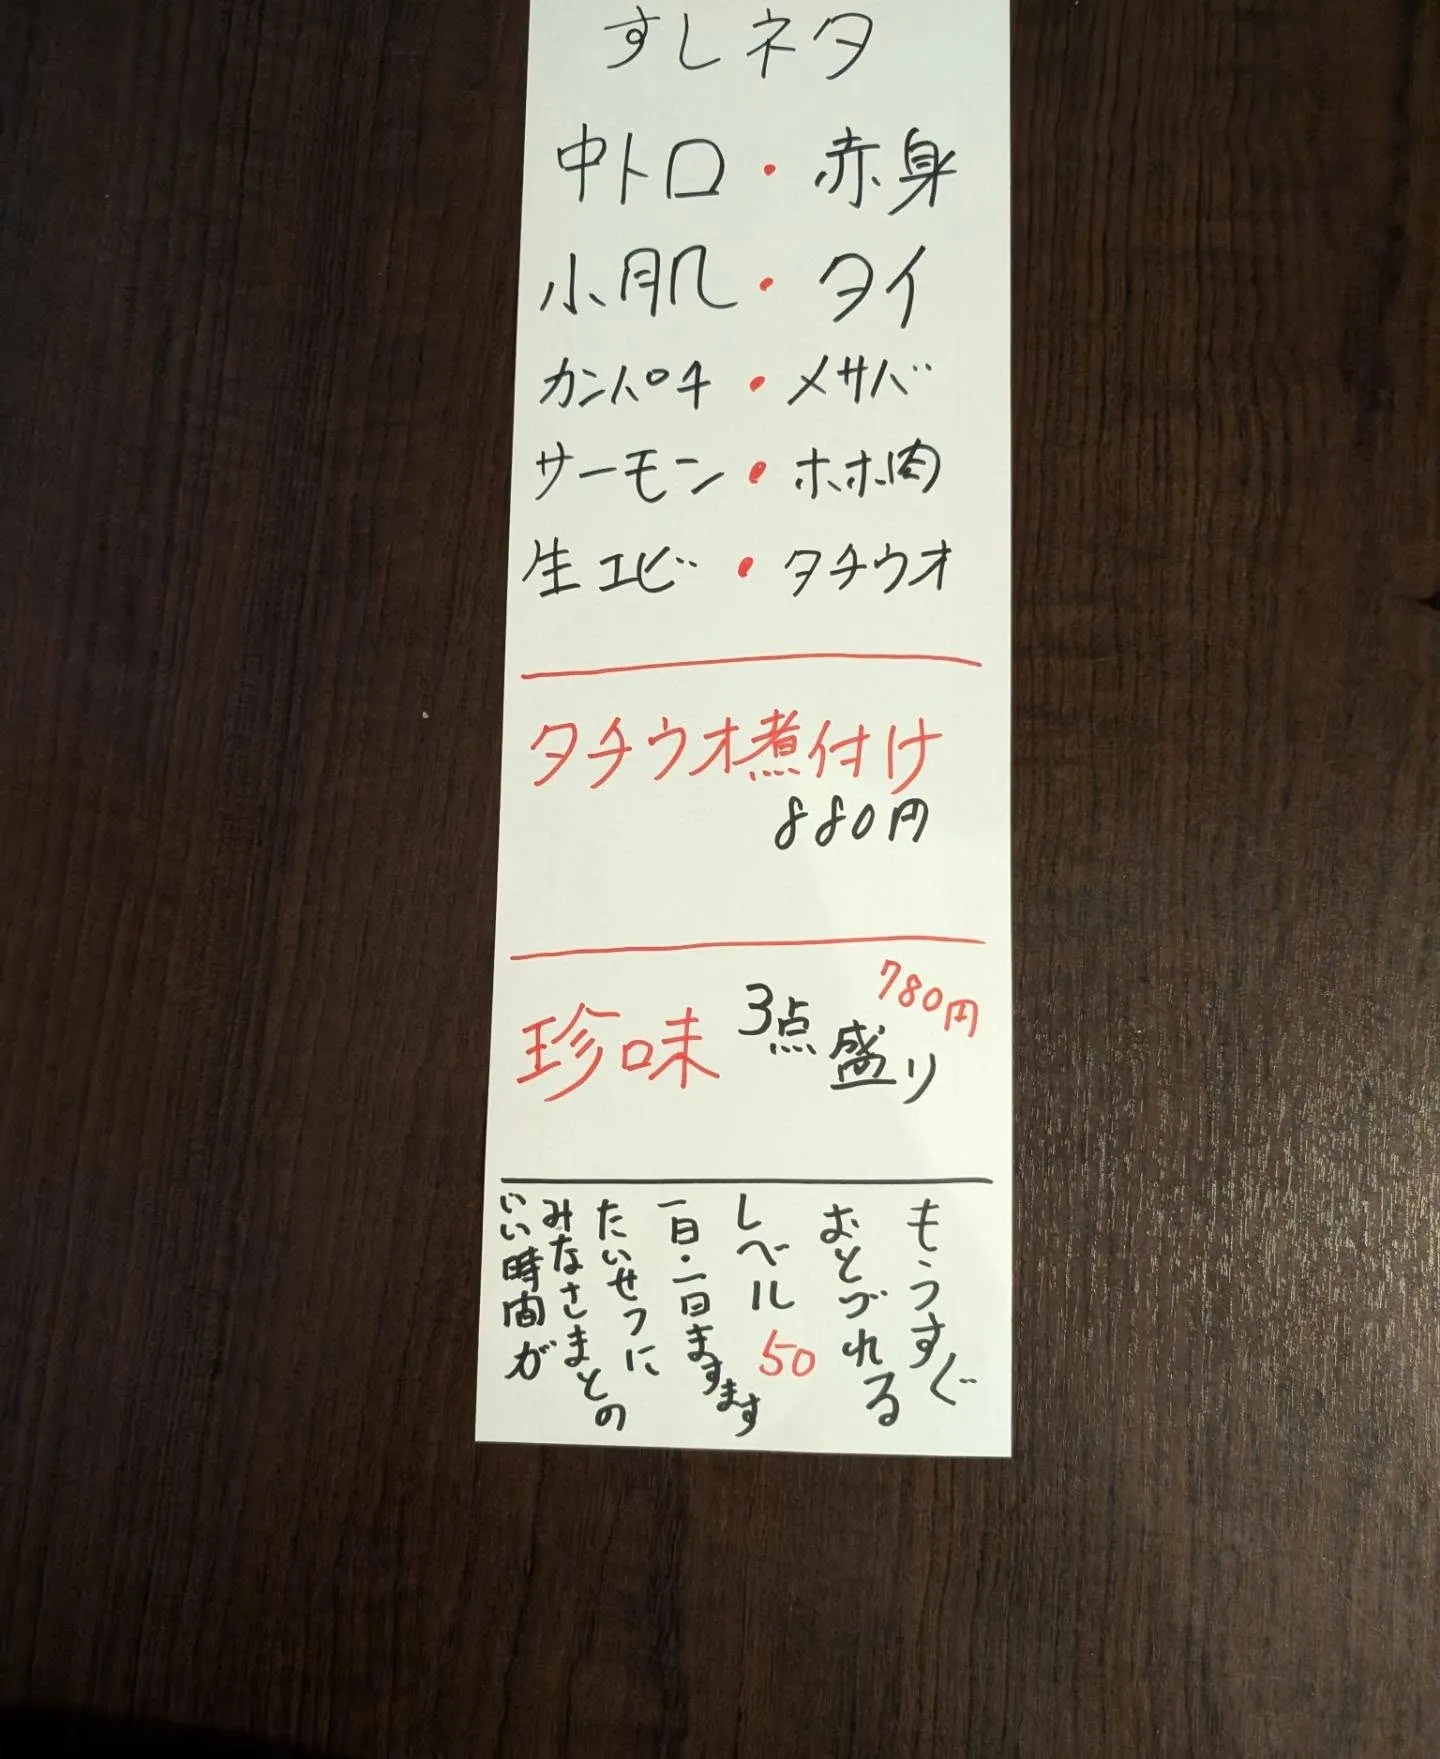 すしネタ
中トロ・赤身
小肌・タイ
カンパチ・メサバ
サーモン・ホホ肉
生エビ・タチウオ
タチウオ煮付け
880円
珍味 3点盛り 780円
もうすぐ
おとづれる
レベル50
一日・一日ますます
たいせつに
みなさまとの
いい時間が